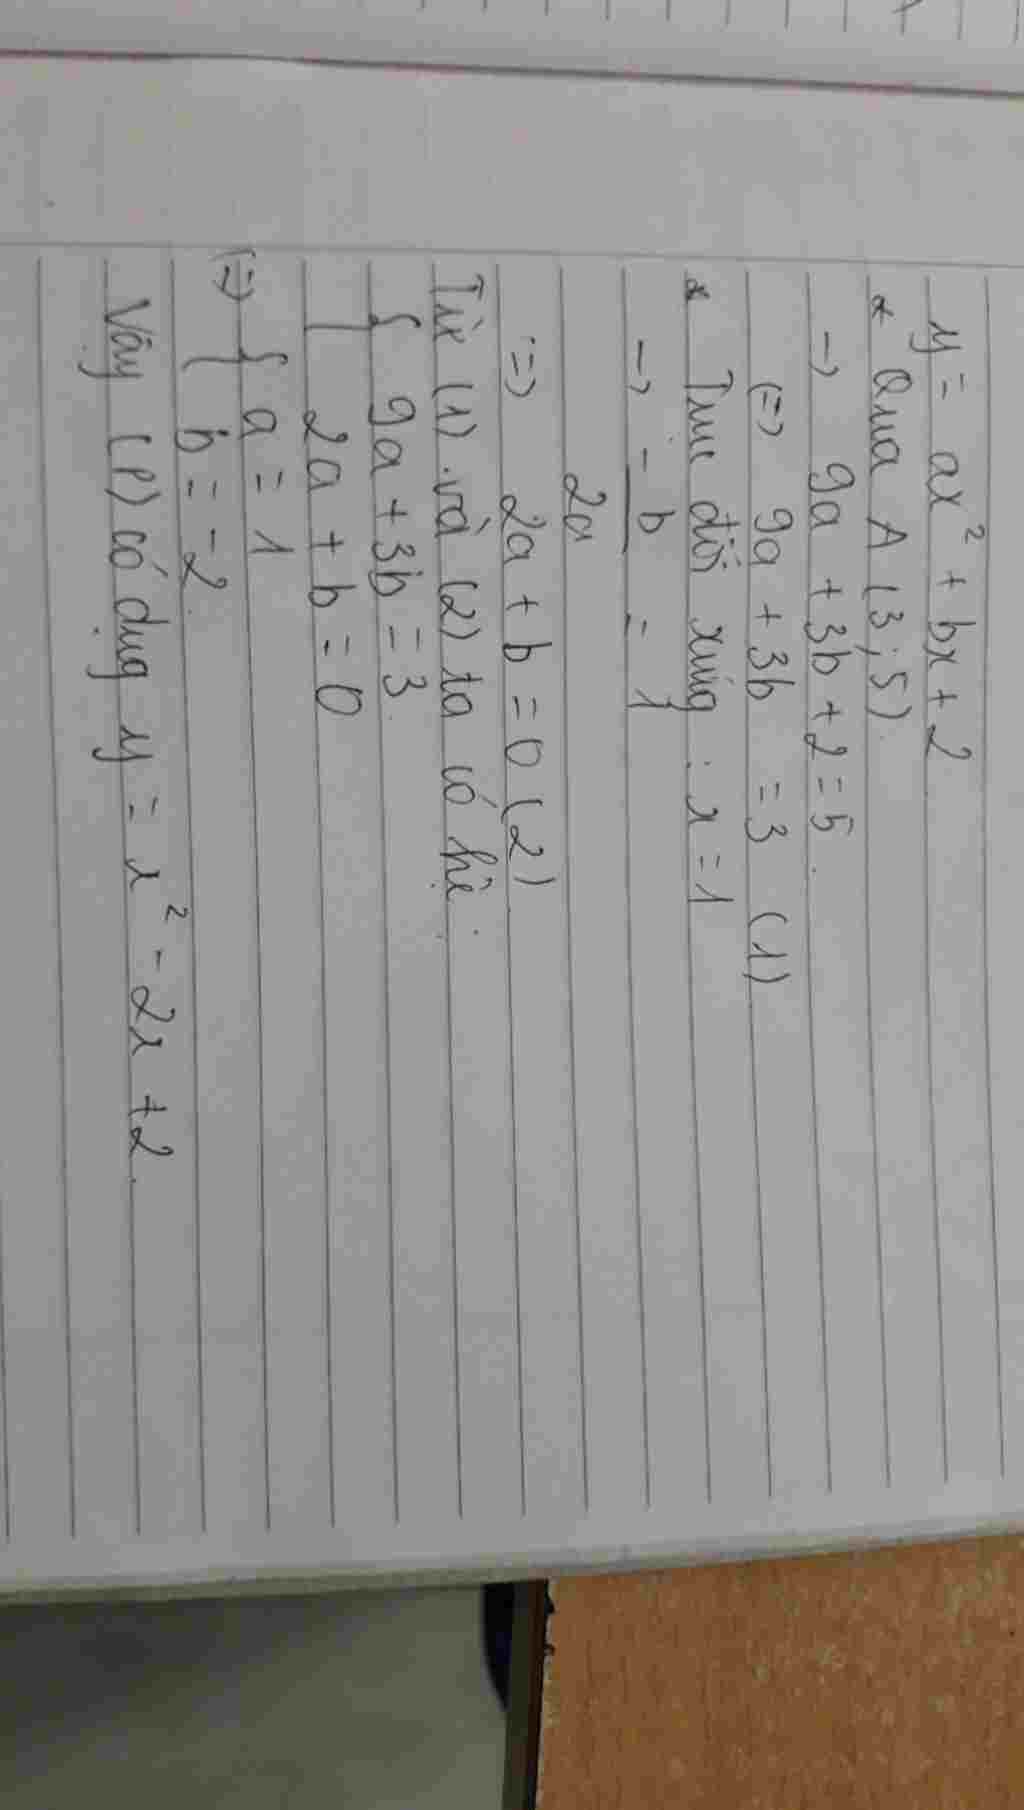 y = ax² + bx + 2
* Qua A (3; 5).
→ 9a + 3b + 2 = 5.
(=) 9a + 3b = 3 (1)
* Trục đối xứng : x = 1
→ -b/2a = 1
=) 2a + b = 0 (2)
Từ (1) và (2) ta có hệ:
{ 9a + 3b = 3
2a + b = 0
(=) { a = 1
b = -2
Vậy (P) có dạng y = x² - 2x + 2